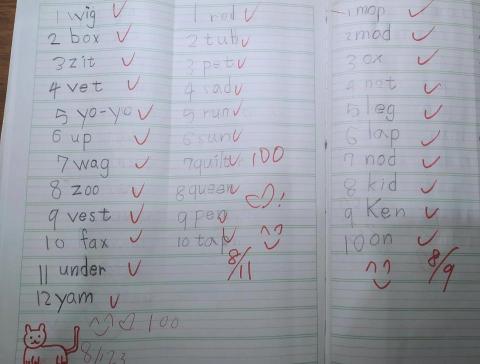 1 wig
2 box
3 zit
4 vet
5 yo-yo
6 up
7 wag
8 zoo
9 vest
10 fax
11 under
12 yam
100
8/23
1 rod
2 tub
3 pet
4 sad
5 run
6 sun
7 quilt
100
8 queen
9 pen
10 tap
8/11
1 mop
2 mad
3 ox
4 not
5 leg
6 lap
7 nod
8 kid
9 Ken
10 on
8/9